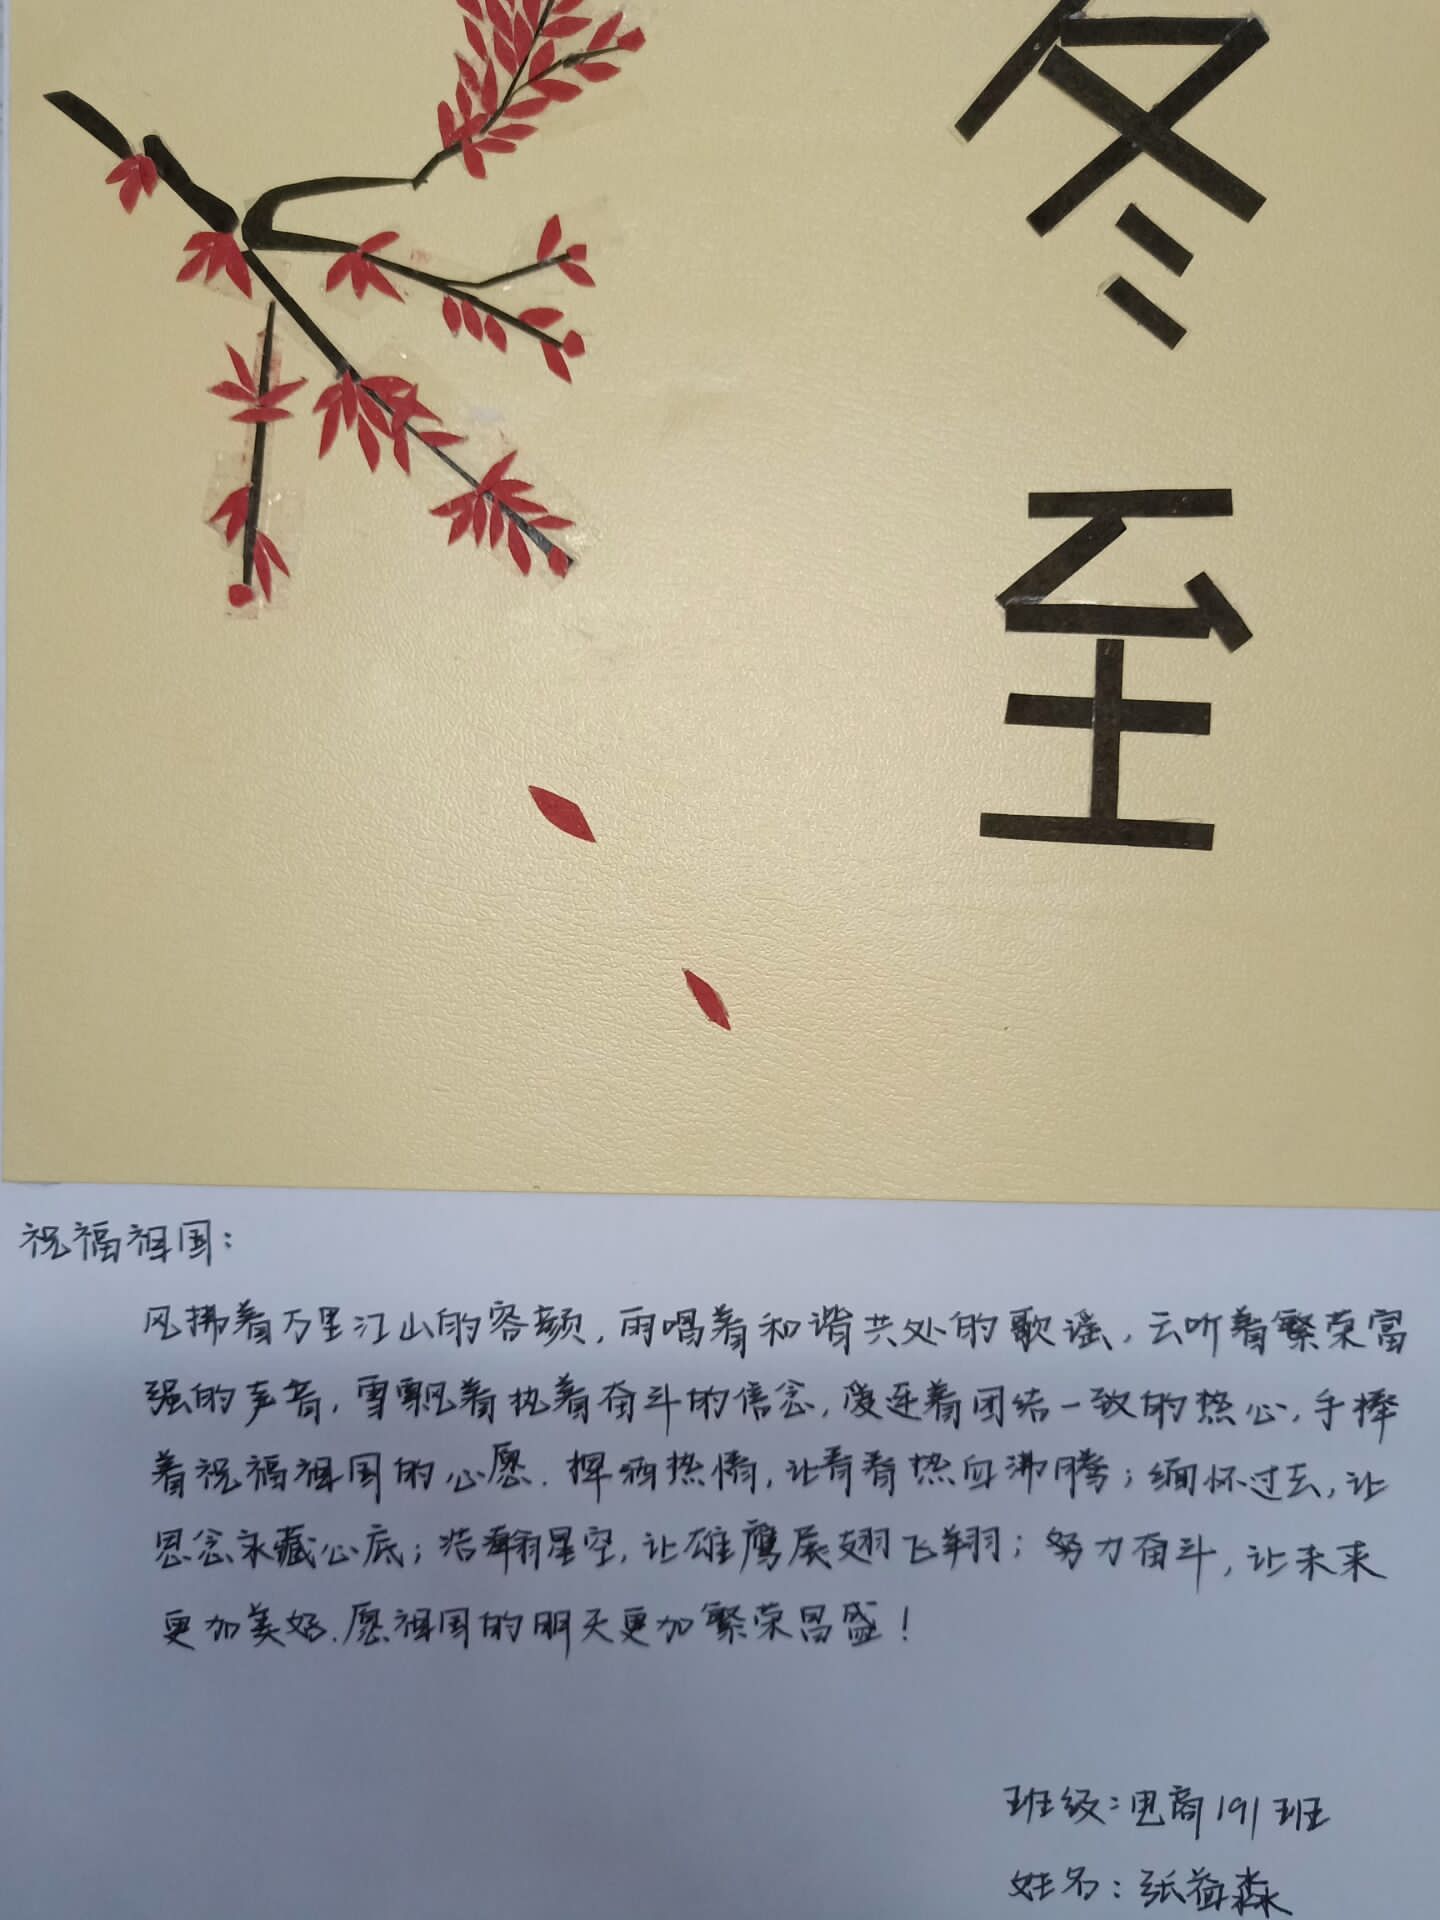 冬至
祝福祖国：
风拂着万里江山的容颜，雨唱着和谐共处的歌谣，云听着繁荣富
强的声音，雪飘着执着奋斗的信念，爱连着团结一致的热心，手捧
着祝福祖国的心愿．挥洒热情，让青春热血沸腾；缅怀过去，让
思念永藏心底；浩瀚星空，让雄鹰展翅飞翔；努力奋斗，让未来
更加美好．愿祖国的明天更加繁荣昌盛！
班级：电商191班
姓名：张益淼